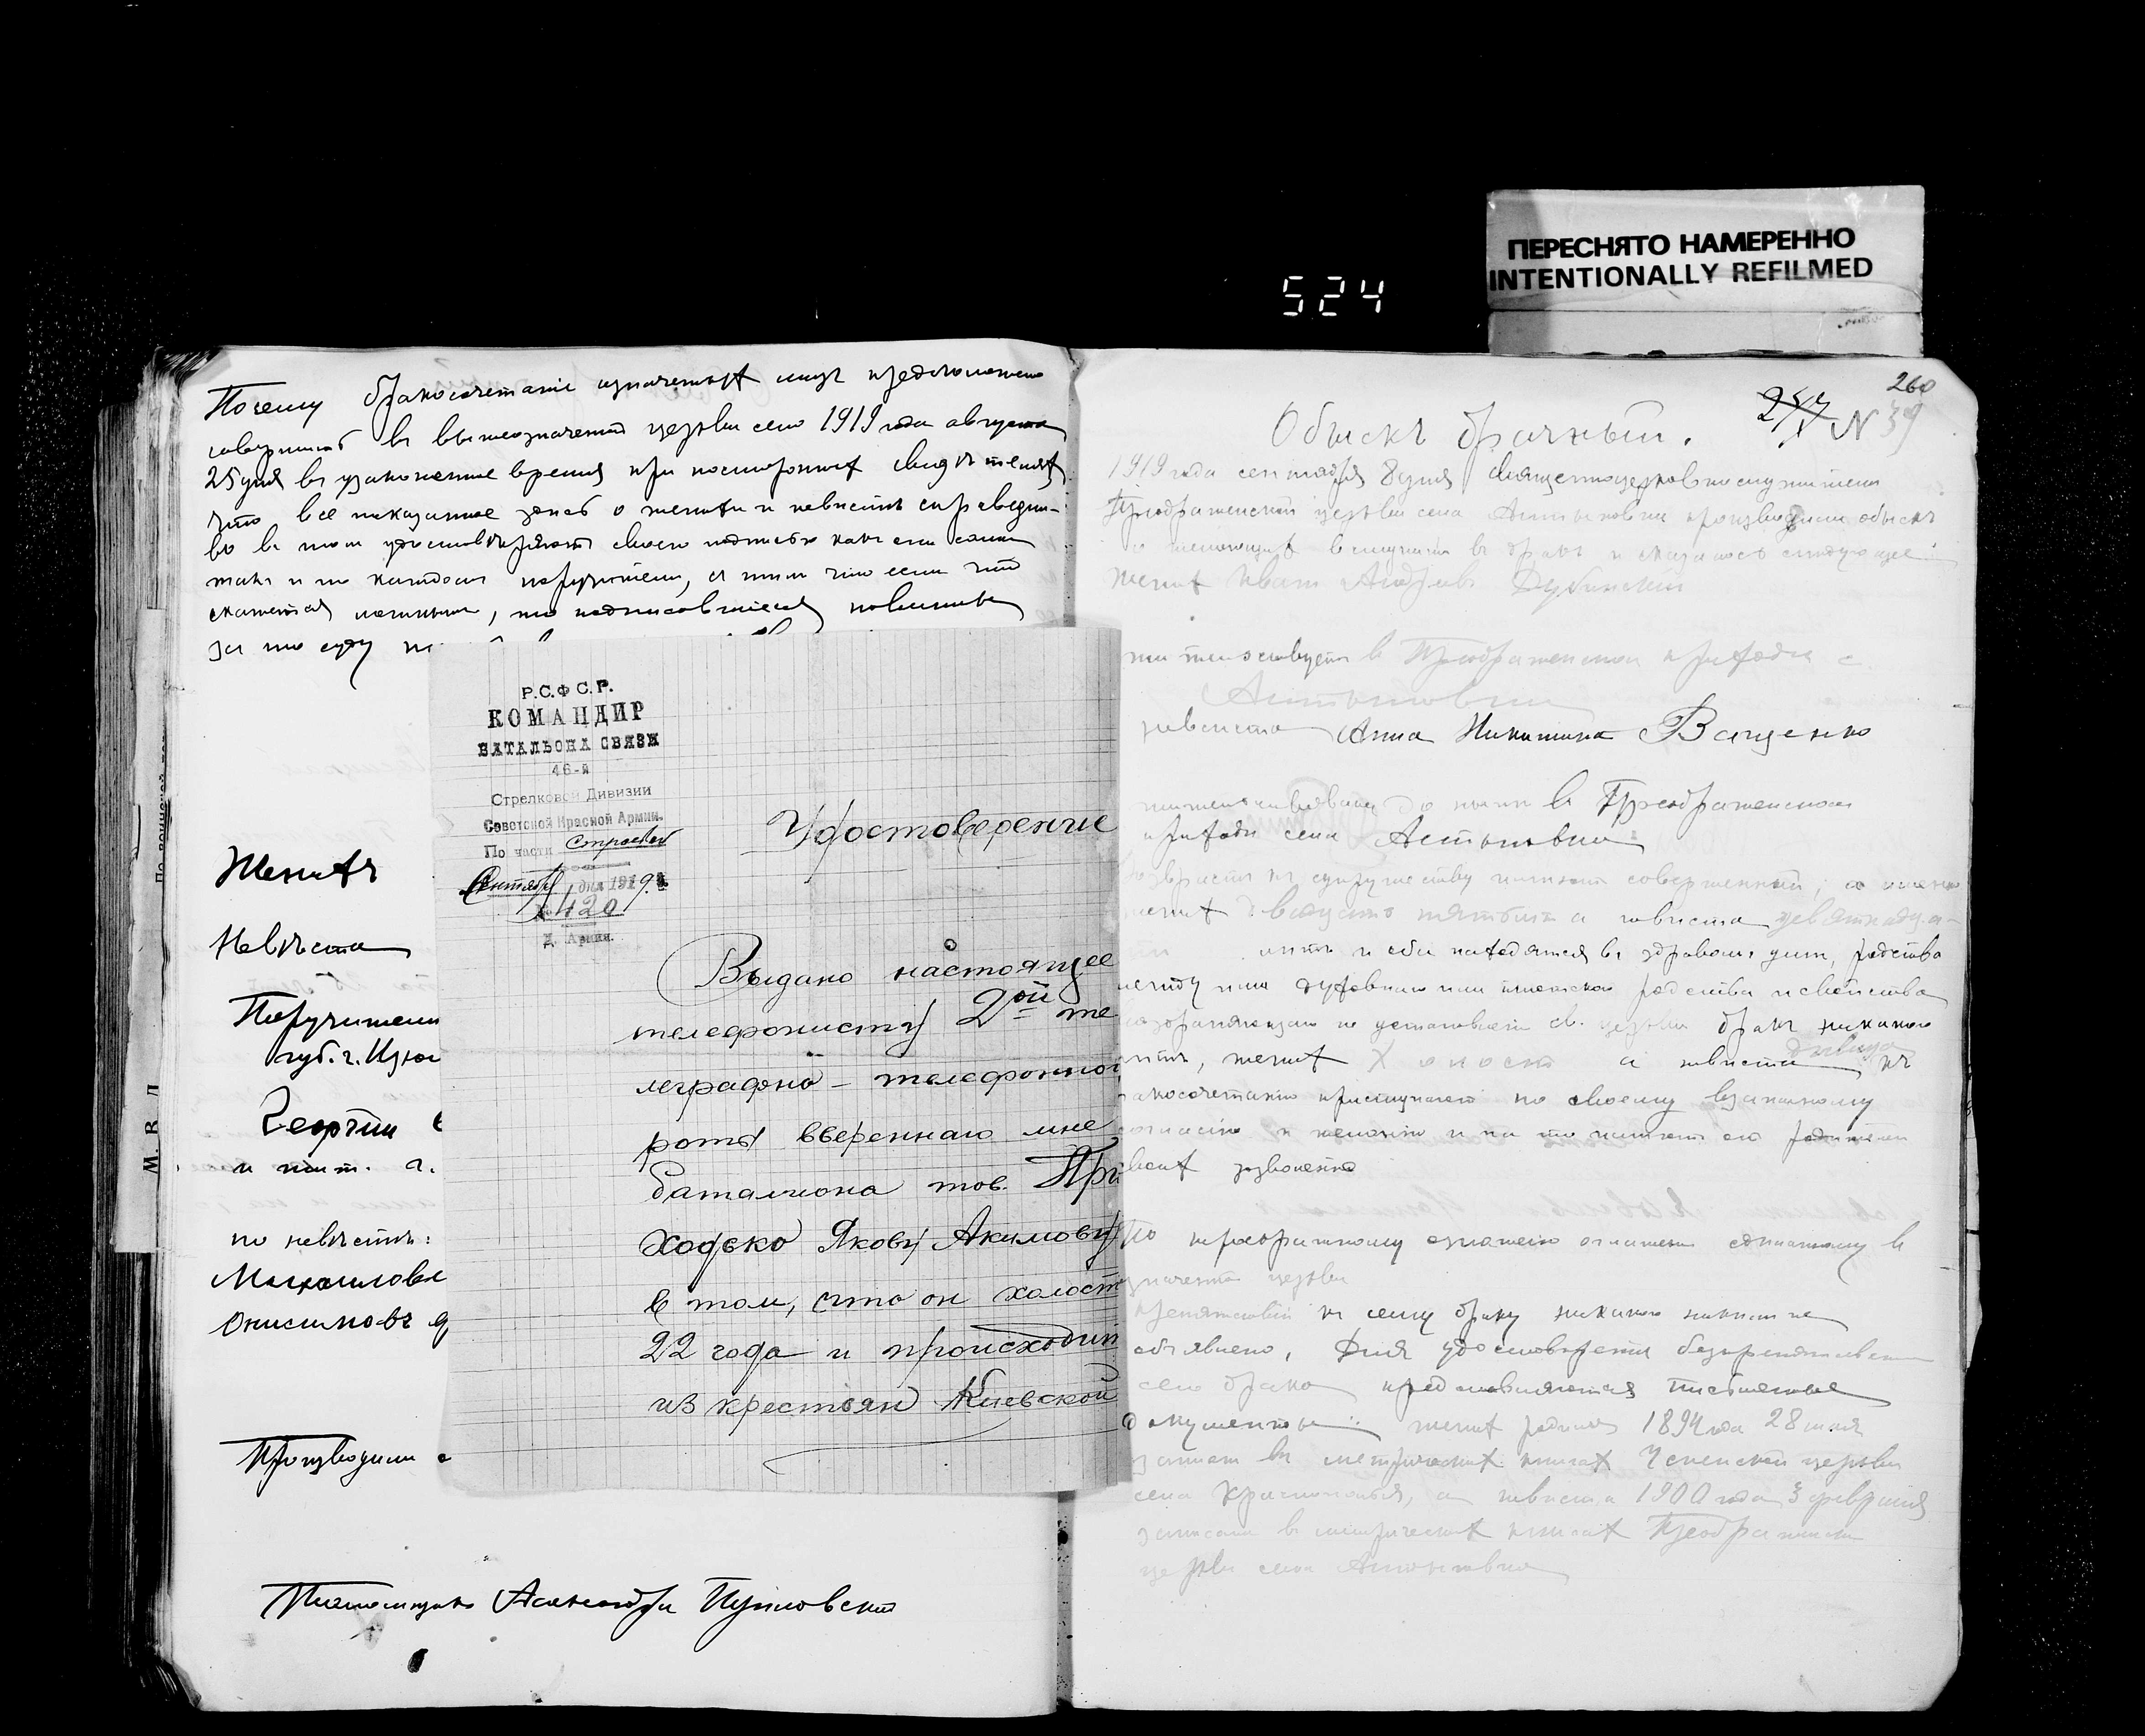 ПЕРЕСНЯТО НАМЕРЕННО
INTENTIONALLY REFILMED
524
Почему бракосочетание означенных лицъ предположено
совершить въ вышеозначенной церкви сего 1919 года августа
25 дня въ узаконенное время при постороннихъ свидѣтеляхъ
что все показанное здесь о женихе и невѣстѣ справедли-
во въ томъ удостовѣряютъ своею подписью какъ они сами
такъ и по каждомъ поручители, съ тѣмъ что если что
окажется ложнымъ, то подписавшіеся повинны
за то суду
Женихъ
Невѣста
Поручители
губ. г. Изю
Георгій
и жит. г.
по невѣстѣ:
Михайлове
Онисимовъ
Производили
Псаломщикъ Александръ
Р.С.Ф.С.Р.
КОМАНДИР
БАТАЛЬОНА СВЯЗИ
46-й
Стрелковой Дивизии
Советской Красной Армии.
По части Строевой
Сентября дня 1919 г.
№ 420
Д. Армия.
Удостоверение
Выдано настоящее
телефонисту 2ой те
леграфно-телефонной
роты вверенного мне
баталиона тов. При
ходько Якову Акимову
в том, что он холост
22 года и происходит
из крестьян Киевской
М. В. Д
260
257
№ 39
Обыскъ брачный.
1919 года сентября 8 дня священноцерковнослужители
Преображенской церкви села производили обыскъ
о желающихъ вступить въ бракъ и оказалось следующее:
женихъ Иванъ Андреевъ Дубинскій
жительствуетъ въ Преображенскомъ приходе с.
невеста Анна Никитина Ващенко
жительствовала до ныне въ Преображенскомъ
приходе села
Возрастъ къ супружеству имеютъ совершенный, а именно
женихъ двадцать пять лѣтъ а невеста девятнадца-
летъ и оба находятся въ здравомъ уме, родства
между ними духовнаго или плотскаго родства и свойства
возбраняющаго по установленію св. церкви бракъ никакого
нетъ, женихъ холостъ а невеста девица къ
бракосочетанію приступаютъ по своему взаимному
согласію и желанію и на то имеютъ отъ родителей
своихъ дозволеніе
По троекратному оглашенію сделанному въ
означенной церкви
препятствій къ сему браку никакого никемъ не
объявлено, Для удостоверенія безпрепятственности
сего брака представляются письменные
документы: женихъ родился 1894 года 28 мая
записанъ въ метрическихъ книгахъ Успенской церкви
села Краснополья, а невеста 1900 года 3 февраля
записана въ метрическихъ книгахъ Преображенской
церкви села